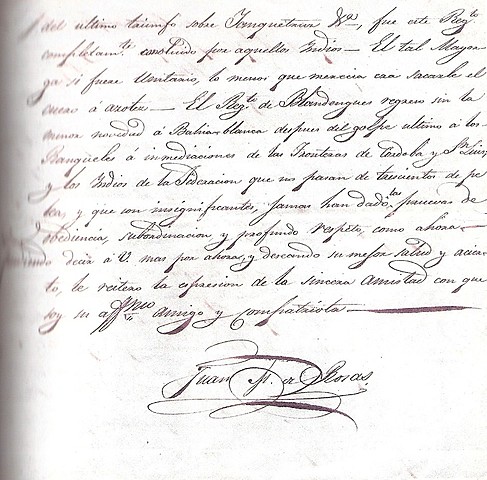 del ultimo triumfo sobre Yanquetruz &ª, fue este Regto
completamte concluido por aquellos Indios — El tal Mayor
ga si fuese Unitario, lo menor que merecia era sacarle el
cuero á azotes — El Regto de Blandengues regresó sin la
menor novedad á Bahia-blanca despues del golpe ultimo á los
Ranqueles á inmediaciones de las Fronteras de Cordoba y Sn Luis;
y los Indios de la Federacion que no pasan de trescientos de pe
lea, y que son insignificantes, jamas han dado tas pruevas de
obediencia, subordinacion y profundo respeto, como ahora —
decir á U mas por ahora, y deseando su mejor salud y acier
to, le reitero la espresion de la sincera amistad con que
soy su affmo amigo y compatriota —
Juan M. de Rosas